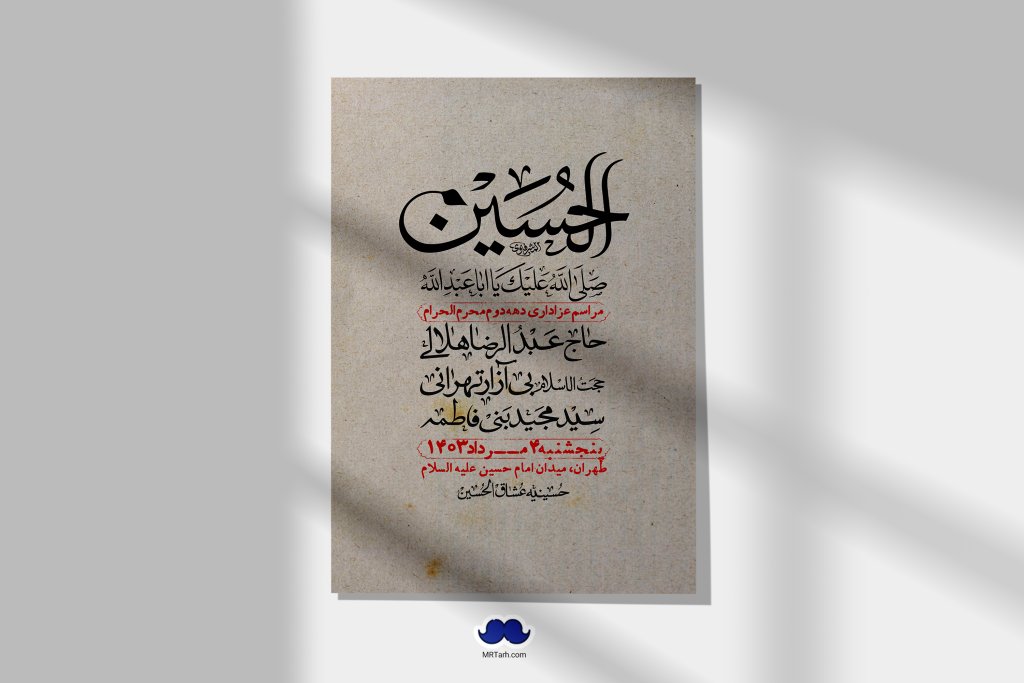 الحُسَین
صَلَی اللّهُ عَلیْكَ یَا اَبَا عَبْدِ اللّهُ
مراسم عزاداری دهه دوم محرم الحرام
حاج عَبْدُ الرضا هلالے
حجت الاسلام بی آزار تهرانی
سِیّد مجید بَنی فاطمه
پنجشنبه ۴ مرداد ۱۴۰۳
طهران، میدان امام حسین علیه السلام
حسینیه عشاق الحسین
MRTarh.com